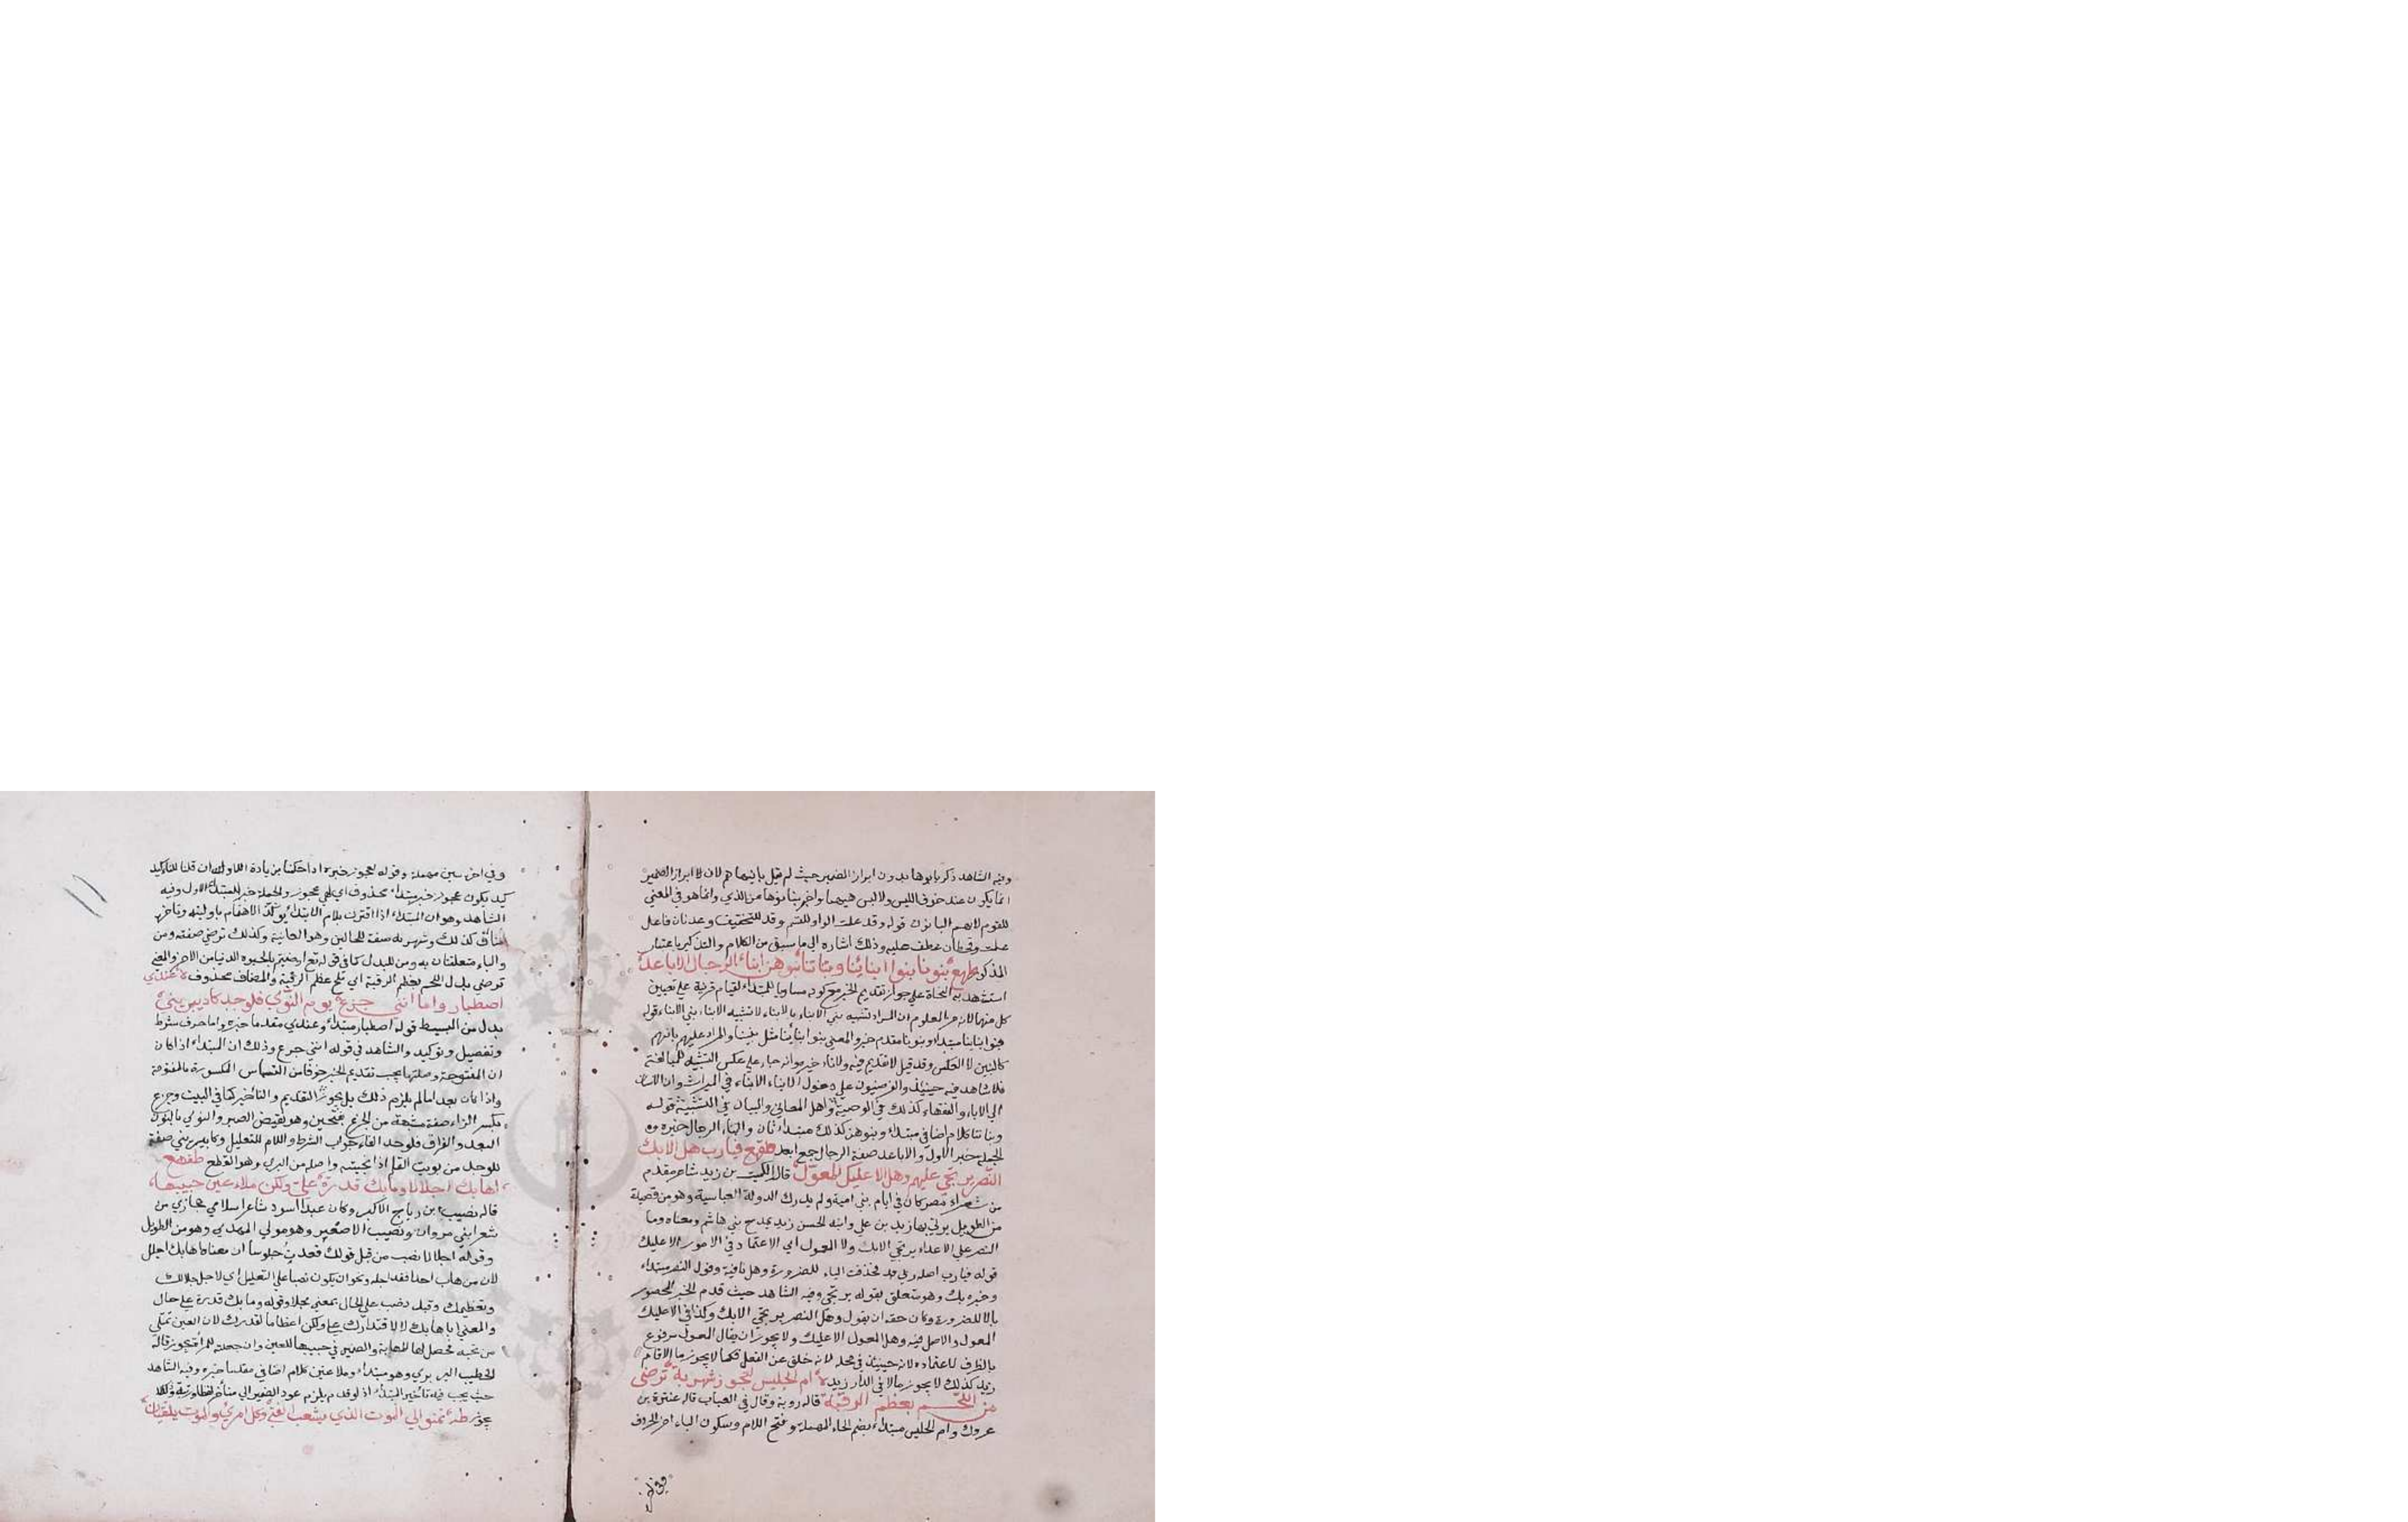 وفيه الشاهد ذكر بانوها بدون ابراز الضمير حيث لم يقل بانيها هم لان ابراز الضمير
انما يكون عند خوف اللبس ولا لبس ههنا واخبر بنا نوها من الذي وانما هو في المعنى
للقوم لانهم البانون قوله وقد علمت الواو للقسم وقد للتحقيق وعدنان فاعل
علمت وقحطان عطف عليه وذلك اشارة الى ما سبق من الكلام والتذكير باعتبار
المذكور ظهع بنونا بنوا ابنائنا وبناتنا بنوهن ابناء الرجال الاباعد
استشهد به النحاة على جواز تقديم الخبر مع كونه مساويا للمبتداء لقيام قرينة على تعيين
كل منهما لانه من المعلوم ان المراد تشبيه بني الابناء بالابناء لا تشبيه الابناء ببني الابناء قوله
بنوا ابناينا مبتداء وبنونا مقدم خبره والمعنى بنوا ابنائنا مثل بنينا والمراد عليهم بانهم
كالبنين لا العكس وقد قيل لا تقديم فيه ولا تاخير وانه جاء على عكس التشبيه للمبالغة
فلا شاهد فيه حينئذ والفرضيون على دخول الابناء الابناء في الميراث وان الانتساب
الى الاباء والفقهاء كذلك في الوصية واهل المعاني والبيان في التشبيه قوله
وبناتنا كلام اضافي مبتداء وبنوهن كذلك مبتداء ثان وابناء الرجال خبره و
الجملة خبر الاول والاباعد صفة الرجال جمع ابعد طقهع فيا رب هل الا بك
النصر يرتجى عليهم وهل الا عليك المعول قاله الكميت بن زيد شاعر مقدم
من شعراء مضر كان في ايام بني امية ولم يدرك الدولة العباسية وهو من قصيدة
من الطويل يرثي بها زيد بن علي وابنه الحسين زيد يمدح بني هاشم ومعناه وما
النصر على الاعداء يرتجى الا بك ولا المعول اي الاعتماد في الامور الا عليك
قوله فيا رب اصله ربي فحذفت الياء للضرورة وهل نافية وقوله النصر مبتداء
وخبره بك وهو متعلق بقوله يرتجى وفيه الشاهد حيث قدم الخبر المحصور
بالا للضرورة وكان حقه ان يقول وهل النصر يرتجى الا بك وكذا في الا عليك
المعول والاصل فيه وهل المعول الا عليك ولا يجوز ان يقال المعول مرفوع
بالظرف لاعتماده لانه حينئذ في محله لانه خلف عن الفعل فكما لا يجوز ما الا قام
زيد كذلك لا يجوز ما الا في الدار زيد لا ام الحليس لعجوز شهربة ترضى
من اللحم بعظم الرقبة قاله روبة وقال في العباب قاله عنترة بن
عروك وام الحليس مبتداء بضم الحاء المهملة وفتح اللام وسكون الياء اخر الحروف
وفي اخر
وفي اخره سين مهملة وقوله لعجوز خبره اذا حكمنا بزيادة اللام وان قلنا للتاكيد
يكون عجوز خبر مبتداء محذوف اي لهي عجوز والجملة خبر المبتداء الاول وفيه
الشاهد وهو ان المبتداء اذا اقترن بلام الابتداء يوكد الاهتمام باوليته وتاخره
مناف كذلك وشهربة صفة للحالين وهو الفانية وكذلك ترضى صفته ومن
والباء متعلقتان به ومن للبدل كما في قوله تع ارضيتم بالحيوة الدنيا من الاخرة والمعنى
ترضى بدل اللحم بعظم الرقبة اي بلحم عظم الرقبة والمضاف محذوف لا عندي
اصطبار واما انني جزع يوم النوى فلوجد كاد يبريني
بدل من البسيط قوله اصطبار مبتداء وعندي مقدما خبره واما حرف شرط
وتفصيل وتوكيد والشاهد في قوله انني جزع وذلك ان المبتداء اذا كان
ان المفتوحة وصلتها يجب تقديم الخبر خوفا من التباس المكسورة بالمفتوحة
واذا كان بعد اما لم يلزم ذلك بل يجوز التقديم والتاخير كما في البيت وجزع
بكسر الزاء صفة مشبهة من الجزع بفتحتين وهو نقيض الصبر والنوى بالنون
البعد والفراق فلوجد الفاء جواب الشرط واللام للتعليل وكاد يبريني صفة
للوجد من بريت القلم اذا نحيته واصله من البري وهو القطع طقهع
اهابك اجلالا وما بك قدرة علي ولكن ملاء عين حبيبها
قاله نصيب بن رباح الاكبر وكان عبدا اسود شاعرا سلامي حجازي من
شعراء بني مروان ونصيب الاصغر وهو مولى المهدي وهو من الطويل
وقوله اجلالا نصب من قبل قولك قعدت جلوسا ان معنى اهابك اجلك
لان من هاب احدا فقد اجله ونحو ان يكون نصبا على التعليل اي لاجل جلالك
وتعظيمك وقيل نصب على الحال بمعنى مجلا وقوله وما بك قدرة علي حال
والمعنى اهابك لا لاقتدارك علي ولكن اعظاما لقدرك لان العين تمتلئ
من تحبه فحصل لها المهابة والضمير في حبيبها للعين وان جعلته للمراة يجوز قاله
الخطيب التبريزي وهو مبتداء وملاء عين كلام اضافي مقدما خبره وفيه الشاهد
حيث يجب فيه تاخير المبتداء اذ لو قدم يلزم عود الضمير الى متاخر لفظا ورتبة وذلك
يجوز ظهع تمنوا لي الموت الذي يشعب الفتى وكل امرئ والموت يلتقيان